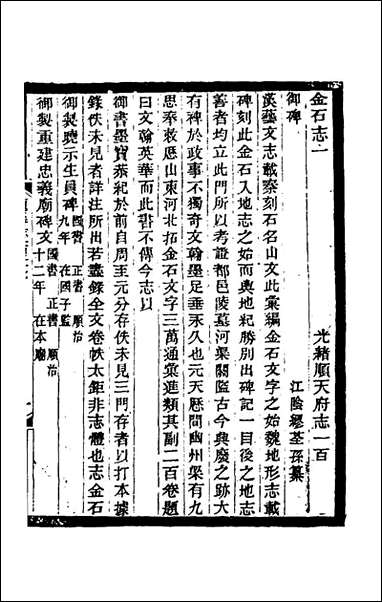 金石志一　光緒順天府志一百
江陰繆荃孫纂
御碑
漢藝文志載秦刻石名山文此彙編金石文字之始魏地形志載
碑刻此金石入地志之始而輿地紀勝別出碑記一目後之地志
善者均立此門所以考證都邑陵墓河渠關隘古今興廢之跡大
有裨於政事不獨奇文翰墨足垂永久也元天厯間幽州梁有九
思奉敕厯山東河北拓金石文字三萬通彙進類其副二百卷題
曰文翰英華而此書不傳今志以
御書墨寶恭紀於前自周至元分存佚未見三門存者以打本據
錄佚未見者詳注所出若盡錄全文卷帙太鉅非志體也志金石
御製曉示生員碑國書　正書　順治九年　在國子監
御製重建忠義廟碑文國書　正書　順治十二年　在本廟